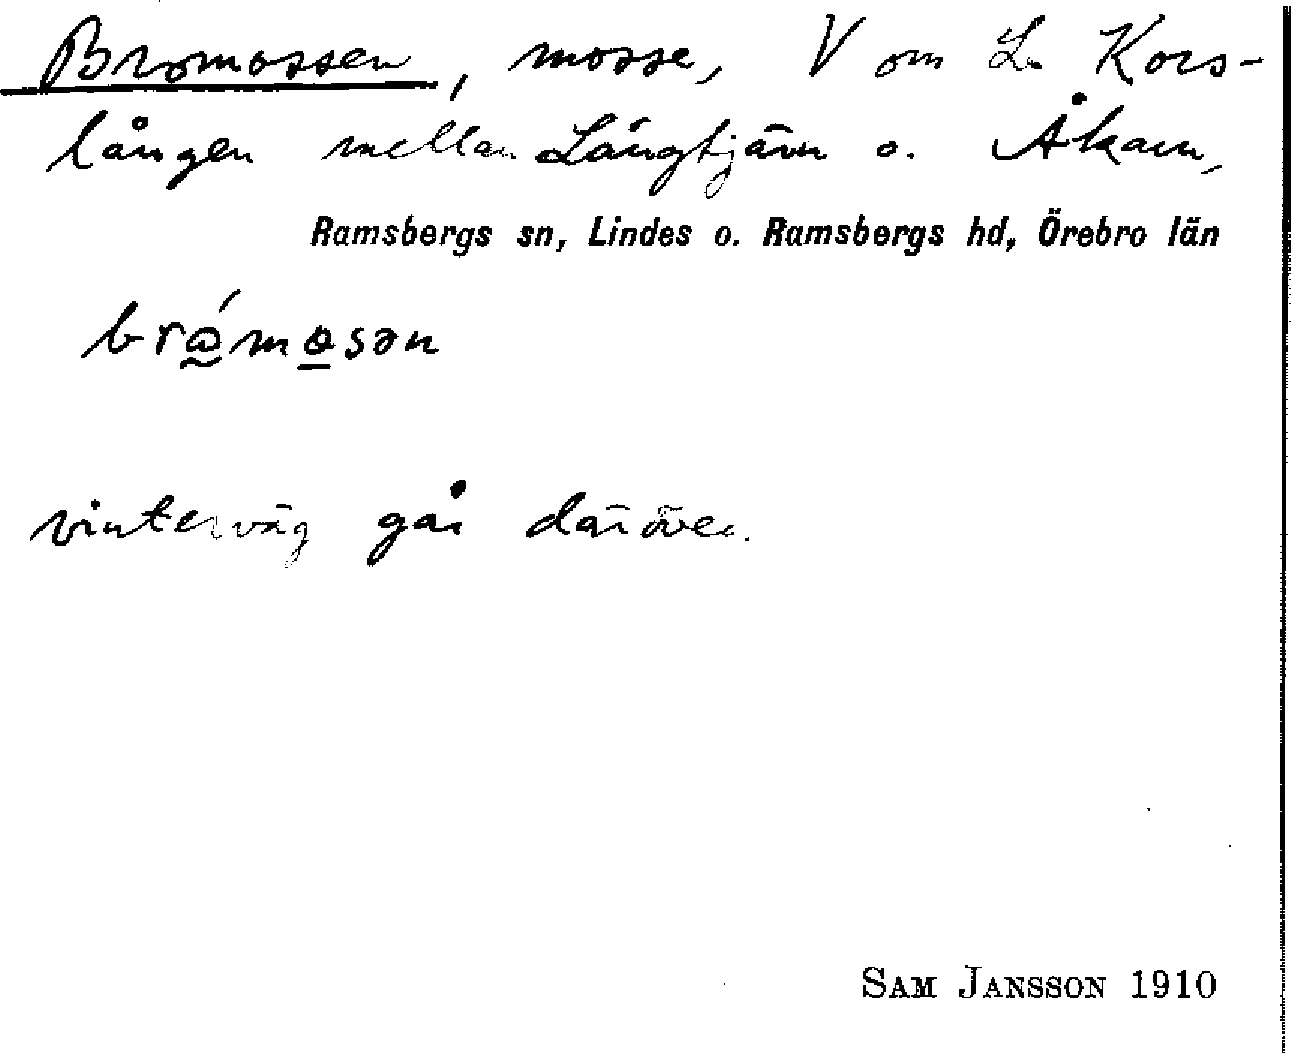 Bromossen, mosse, V om L. Kors-
lången mellan Långtjärn o. Åkarn,
Ramsbergs sn, Lindes o. Ramsbergs hd, Örebro län
vinterväg går däröver.
SAM JANSSON 1910